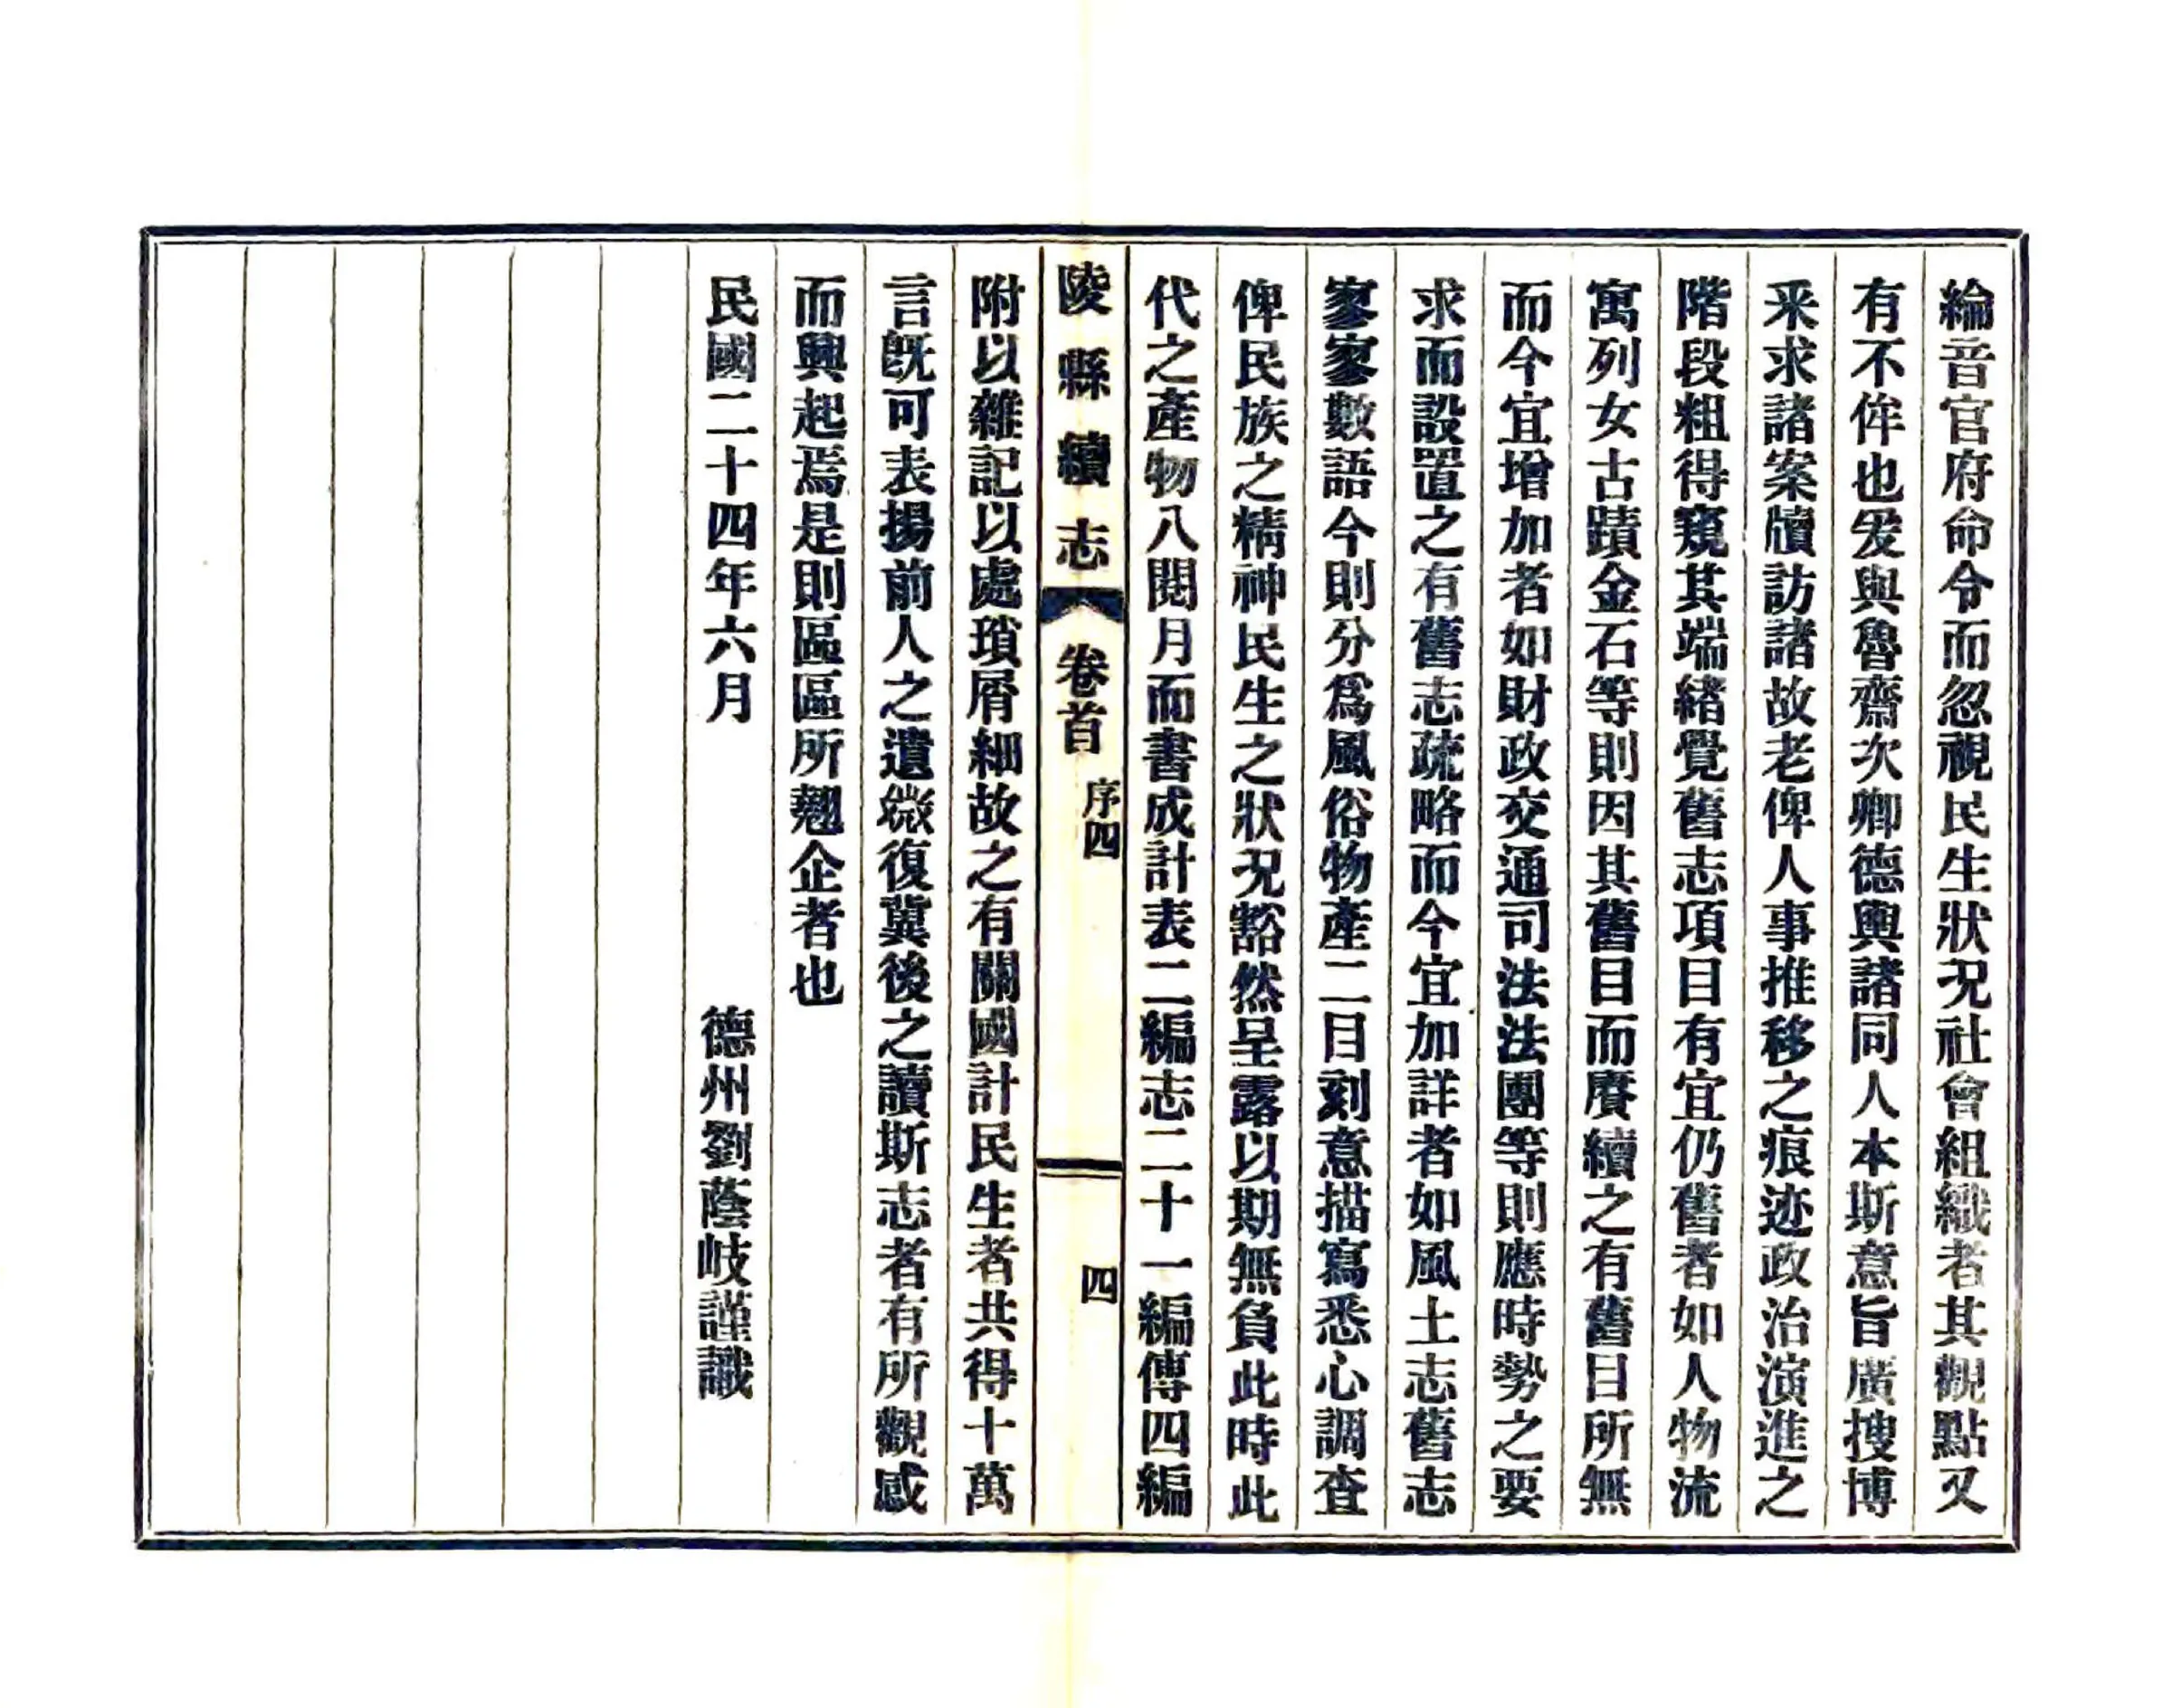 綸音官府命令而忽視民生狀况社會組織者其觀點又
有不侔也爰與魯齋次卿德輿諸同人本斯意旨廣搜博
采求諸案牘訪諸故老俾人事推移之痕迹政治演進之
階段粗得窺其端緒覺舊志項目有宜仍舊者如人物流
寓列女古蹟金石等則因其舊目而賡續之有舊目所無
而今宜增加者如財政交通司法法團等則應時勢之要
求而設置之有舊志疏略而今宜加詳者如風土志舊志
寥寥數語今則分爲風俗物產二目刻意描寫悉心調查
俾民族之精神民生之狀况豁然呈露以期無負此時此
代之產物八閱月而書成計表二編志二十一編傳四編
陵縣續志 卷首 序四 四
附以雜記以處瑣屑細故之有關國計民生者共得十萬
言旣可表揚前人之遺媺復冀後之讀斯志者有所觀感
而興起焉是則區區所翹企者也
民國二十四年六月 德州劉蔭岐謹識